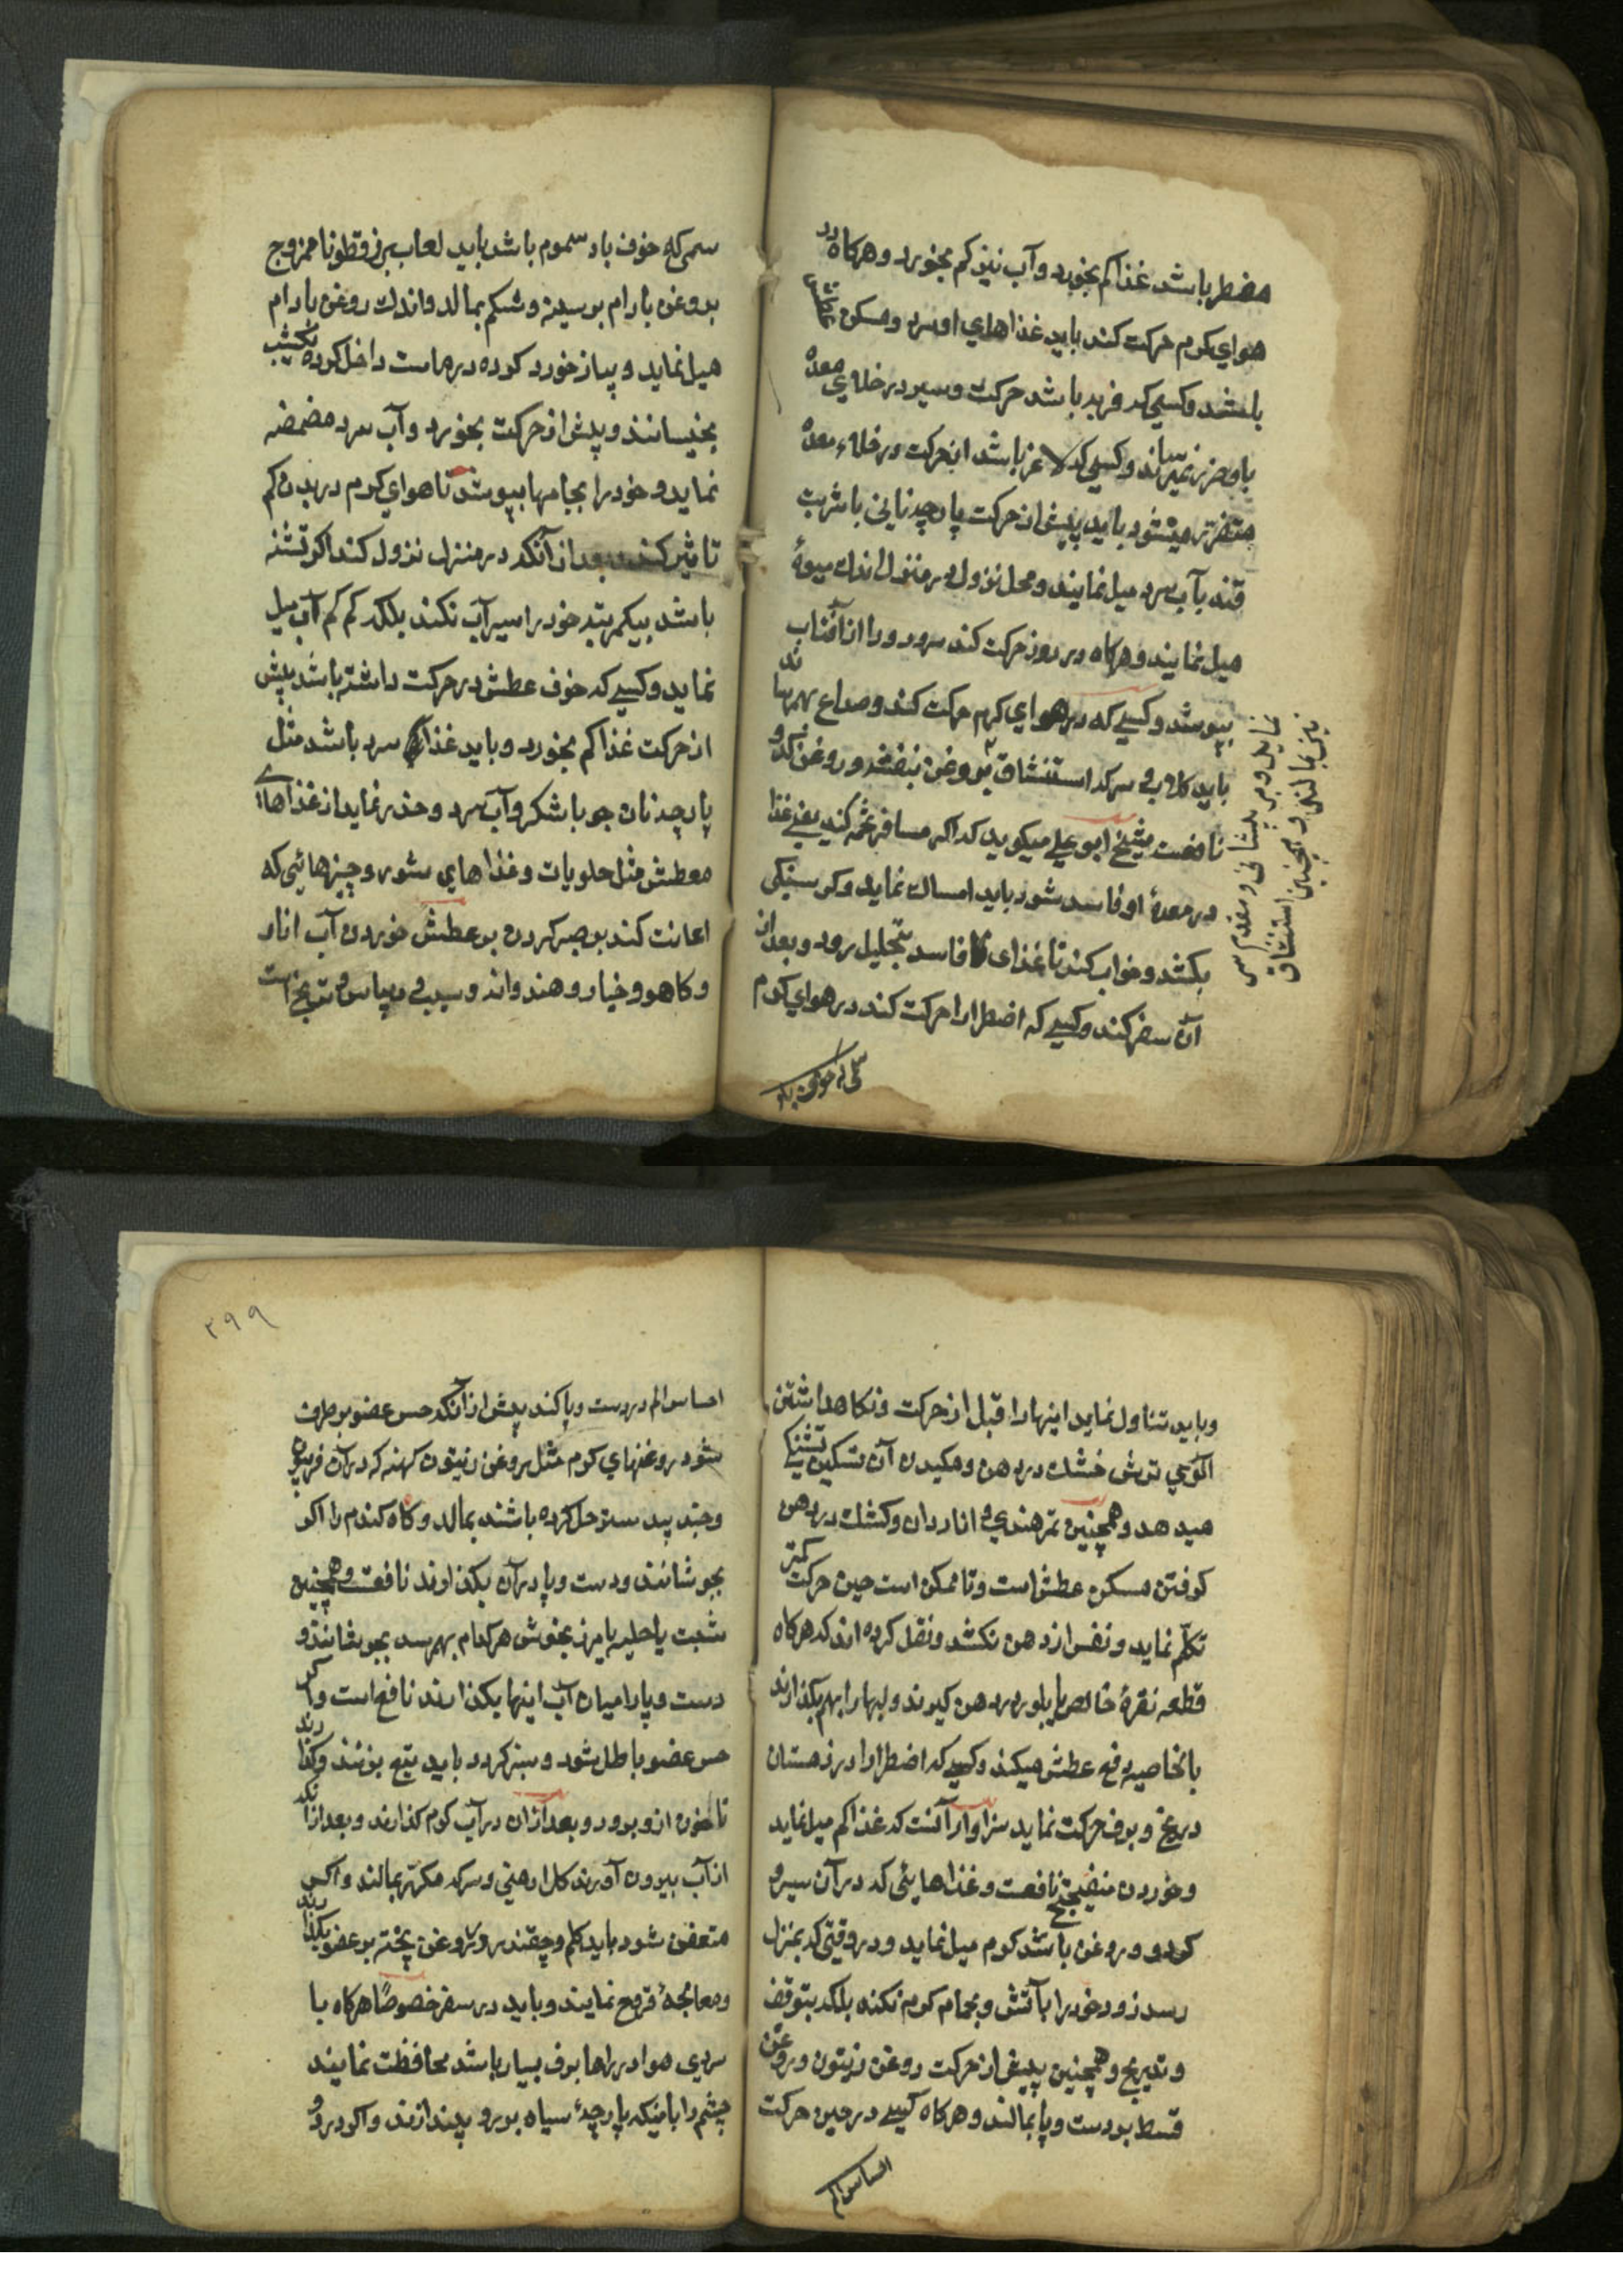 مضطر باشد غذا کم بخورد و آب نیز کم بخورد و هرکاه در
هوای کرم حرکت کند باید غذاهای او سرد و مسکن
باشد و کسی که فربه باشد حرکت و سیر در خلای معده
باو ضرر نمیرساند و کسی که لاغر باشد از حرکت در خلاء معده
متضرر میشود باید پیش از حرکت پارچه نانی با شربت
قند بآب سرد میل نمایند و محل نزول در منزل اندک میوهٔ
میل نمایند و هرکاه در روز حرکت کند سر و رو را از آفتاب
بپوشد و کسی که در هوای کرم حرکت کند و صداع بهمرساند
باید کلاب و سرکه استنشاق و روغن بنفشه و روغن کدو
نافعست شیخ ابو علی میکوید که اکر مسافر تخمه کند یعنی غذا
در معدهٔ او فاسد شود باید امساک نماید و کرسنکی
بکشد و خواب کند تا غذای فاسد بتحلیل رود و بعد از
آن سفر کند و کسی که اضطرارا حرکت کند در هوای کرم
نماید و بر پیشانی و مقدم سر
نیز بمالند و همچنین استنشاق
سمی که خوف باد
سمی که خوف باد سموم باشد باید لعاب بزرقطونا ممزوج
بروغن بادام بر سینه و شکم بمالد و اندک روغن بادام
میل نماید و پیاز خورد کرده در ماست داخل کرده یکشب
بخیسانند و پیش از حرکت بخورد و آب سرد مضمضه
نماید و خود را بجامها بپوشد تا هوای کرم در بدن کم
تاثیر کند و بعد از آنکه در منزل نزول کند اکر تشنه
باشد بیکمرتبه خود را سیرآب نکند بلکه کم کم آب میل
نماید و کسی که خوف عطش در حرکت داشته باشد پیش
از حرکت غذا کم بخورد و باید غذای سرد باشد مثل
پارچه نان جو با شکر و آب سرد و حذر نماید از غذاهای
معطش مثل حلویات و غذاهای شور و چیزهائی که
اعانت کند بر صبر کردن بر عطش خوردن آب انار
و کاهو و خیار و هندوانه و سیب و ریباس و ترنج است
و باید تناول نماید اینها را قبل از حرکت و نکاهداشتن
آلوی ترش خشک در دهن و مکیدن آن تسکین تشنکی
میدهد و همچنین تمر هندی و اناردان و کشک در دهن
کرفتن مسکن عطش است و تا ممکن است حین حرکت کمتر
تکلّم نماید و نفس از دهن نکشد و نقل کرده اند که هرکاه
قطعه نقرهٔ خالص یا بلور در دهن کیرند و لبها را بهم بکذارند
بالخاصیه رفع عطش میکند و کسی که اضطرارا در زمستان
در یخ و برف حرکت نماید سزاوار آنست که غذا کم میل نماید
و خوردن نافعست و غذاهایئی که در آن سیر و
کردو و روغن باشد کرم میل نماید و در وقتی که بمنزل
رسد زود خود را بآتش و بحمام کرم نکند بلکه بتوقف
و تدریج و همچنین پیش از حرکت روغن زیتون و روغن
قسط بر دست و پا بمالند و هرکاه کسی در حین حرکت
احساس الم
۲۹۹
احساس الم در دست و پا کند پیش از آنکه حس عضو برطرف
شود روغنهای کرم مثل روغن زیتون کهنه که در آن فرفیون
و جند بیدستر حل کرده باشند بمالد و کاه کندم را اکر
بجوشانند و دست و پا در آن بکذارند نافعست و همچنین
شبت یا حلبه یا مرزنجوش هرکدام بهم رسد بجوشانند و
دست و پا را میان آب اینها بکذارند نافع است و اکر
حس عضو باطل شود و سبز کردد باید تیغ بزنند و کذارند
تا خون ازو برود و بعد از آن در آب کرم کذارند و بعد از آنکه
از آب بیرون آورند کل ارمنی و سرکه مکرر بمالند و اکر
متعفن شود باید کلم و چقندر در روغن پخته بر عضو بکذارند
و معالجهٔ قروح نمایند و باید در سفر خصوصًا هرکاه با
سردی هوا در راها برف بسیار باشد محافظت نمایند
چشم را باینکه پارچهٔ سیاه برو بیندازند و اکر در دو